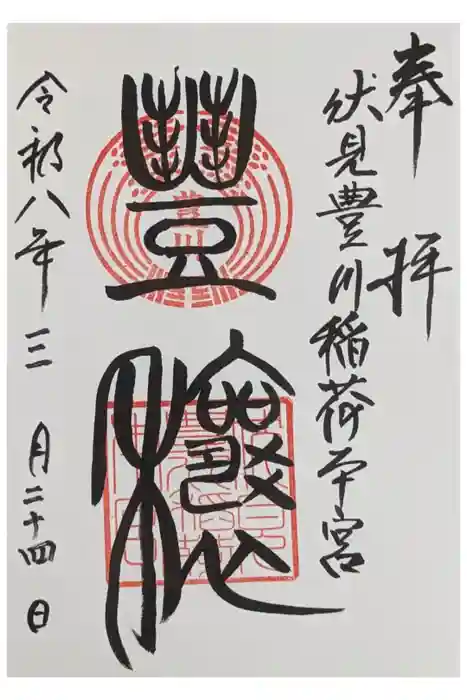 奉拝
伏見豊川稲荷本宮
豊穣
豊川
令和八年三月二十四日